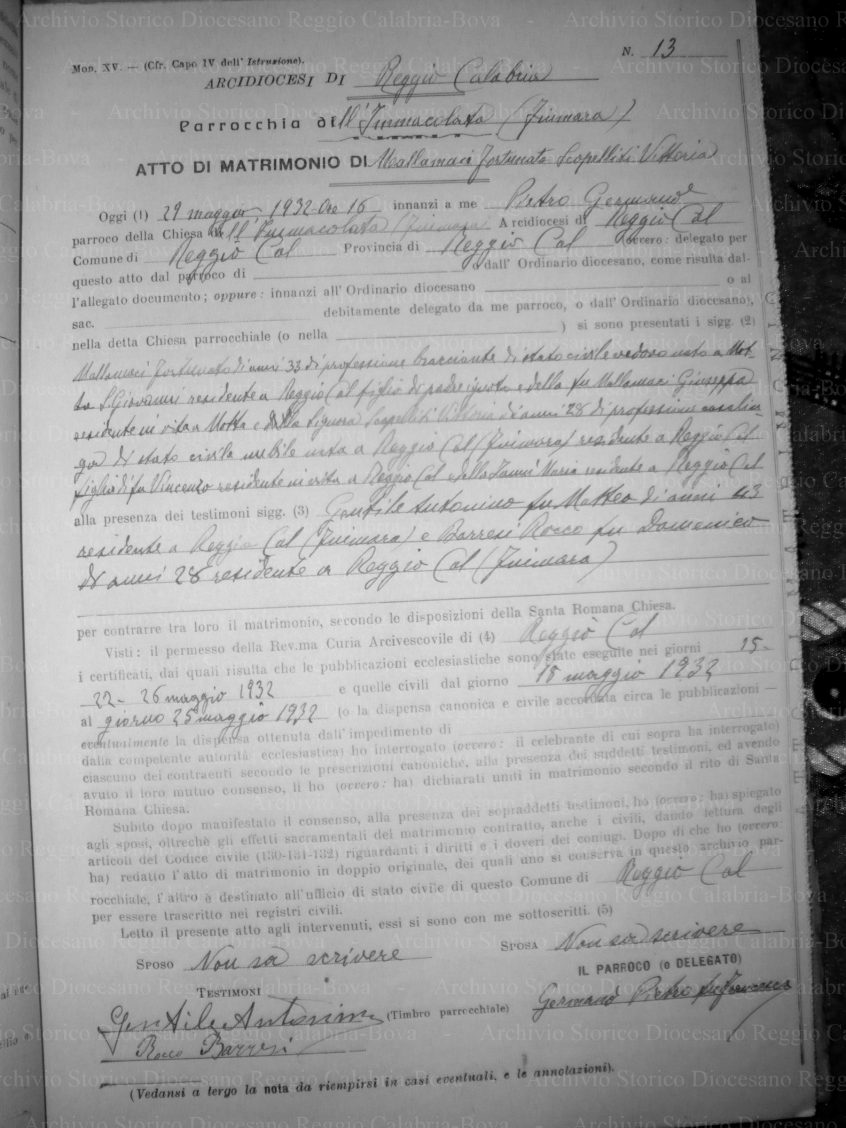 Mod. XV. — (Cfr. Capo IV dell' Istruzione).
N. 13
ARCIDIOCESI DI Reggio Calabria
Parrocchia dell'Immacolata (Fiumara)
ATTO DI MATRIMONIO DI Mallamaci Fortunato Scopelliti Vittoria
Oggi (1) 29 maggio 1932 Ore 16 innanzi a me Pietro Germanò
parroco della Chiesa dell'Immacolata (Fiumara) Arcidiocesi di Reggio Cal
Comune di Reggio Cal Provincia di Reggio Cal ovvero: delegato per
questo atto dal parroco di o dall' Ordinario diocesano, come risulta dal-
l'allegato documento; oppure: innanzi all' Ordinario diocesano o al
sac. debitamente delegato da me parroco, o dall' Ordinario diocesano),
nella detta Chiesa parrocchiale (o nella ) si sono presentati i sigg. (2)
Mallamaci Fortunato di anni 33 di professione bracciante di stato civile vedovo nato a Mot-
ta S. Giovanni residente a Reggio Cal figlio di padre ignoto e della fu Mallamaci Giuseppa
residente in vita a Motta e della Signora Scopelliti Vittoria di anni 28 di professione casalin-
ga di stato civile nubile nata a Reggio Cal (Fiumara) residente a Reggio Cal
figlia di fu Vincenzo residente in vita a Reggio Cal e della Maria residente a Reggio Cal
alla presenza dei testimoni sigg. (3) Gentile Antonino fu Matteo di anni 43
residente a Reggio Cal (Fiumara) e Barresi Rocco fu Domenico
di anni 28 residente a Reggio Cal (Fiumara)
per contrarre tra loro il matrimonio, secondo le disposizioni della Santa Romana Chiesa.
Visti: il permesso della Rev.ma Curia Arcivescovile di (4) Reggio Cal
i certificati, dai quali risulta che le pubblicazioni ecclesiastiche sono state eseguite nei giorni 15-
22- 26 maggio 1932 e quelle civili dal giorno 15 maggio 1932
al giorno 25 maggio 1932 (o la dispensa canonica e civile accordata circa le pubblicazioni —
eventualmente la dispensa ottenuta dall'impedimento di
dalla competente autorità ecclesiastica) ho interrogato (ovvero: il celebrante di cui sopra ha interrogato)
ciascuno dei contraenti secondo le prescrizioni canoniche, alla presenza dei suddetti testimoni, ed avendo
avuto il loro mutuo consenso, li ho (ovvero: ha) dichiarati uniti in matrimonio secondo il rito di Santa
Romana Chiesa.
Subito dopo manifestato il consenso, alla presenza dei sopraddetti testimoni, ho (ovvero: ha) spiegato
agli sposi, oltrechè gli effetti sacramentali del matrimonio contratto, anche i civili, dando lettura degli
articoli del Codice civile (130-131-132) riguardanti i diritti e i doveri dei coniugi. Dopo di che ho (ovvero:
ha) redatto l'atto di matrimonio in doppio originale, dei quali uno si conserva in questo archivio par-
rocchiale, l'altro è destinato all'ufficio di stato civile di questo Comune di Reggio Cal
per essere trascritto nei registri civili.
Letto il presente atto agli intervenuti, essi si sono con me sottoscritti. (5)
SPOSO Non sa scrivere SPOSA Non sa scrivere
TESTIMONI
IL PARROCO (o DELEGATO)
Gentile Antonino (Timbro parrocchiale) Germanò Pietro fu Francesco
Rocco Barresi
(Vedansi a tergo la nota da riempirsi in casi eventuali, e le annotazioni).
Archivio Storico Diocesano Reggio Calabria-Bova